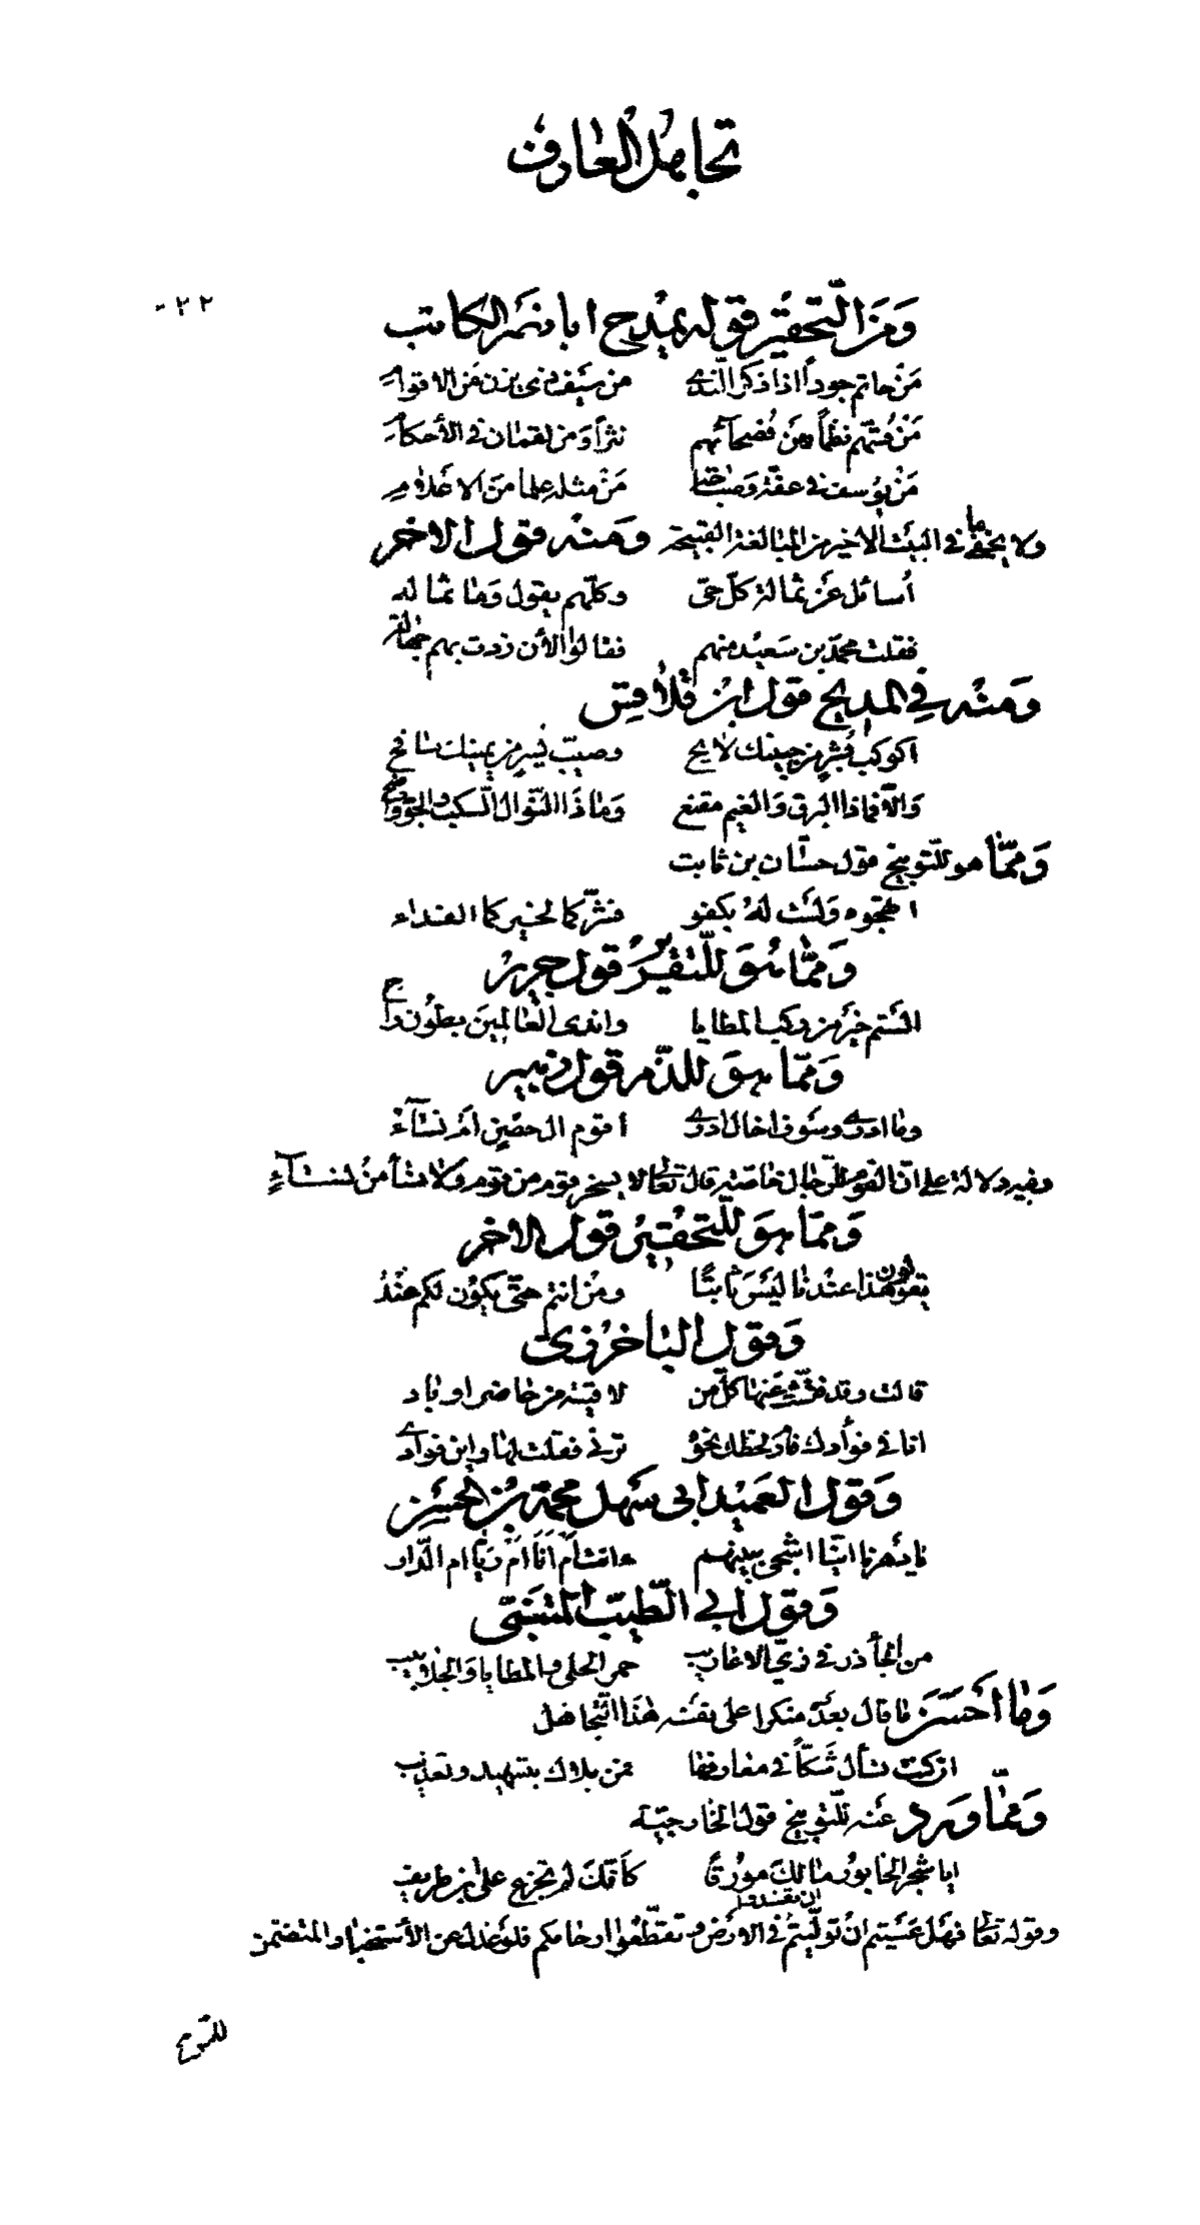 تجاهل العارف
٢٢٠
وَمَن التّحقير قوله يمدح ابا نصر الكاتب
مَنْ حاتم جوداً اذا ذكر النّدى من سَيف ذى يزن مَن الاقوام
مَنْ قسّهم نظماً ومَن فُضحآئهم نثراً وَمن لقمان فى الأحكام
مَنْ يوُسف فى عفّة وَصباحة مَنْ مثله علما من الاعلام
ولا يخفى ما فى البيَت الأخير من المبالغة القبيحة وَمنْه قول الاخر
أسائل عَن ثمالة كلّ حىّ وكلّهم يقول وَما ثماله
فقلت محمّد بن سَعيْد منهم فقالوا الأن زدت بهم جهالة
وَمنْه فِي المديح قول ابن قلاقس
اكوكب بُشرٍ من جبينك لايح وصيّب خَيرٍ من يمينك سافح
وَالّا فماذا البرق وَالغيم مقنع وَماذَا النّوال السّكب والجوّ واضح
وَممّا هو للتّوبيخ قول حسّان بن ثابت
اهجوه وَلسَت لهُ بكفو فشرّكما لخيركما الفداء
وَممّا سْيق للتّقرير قول جرير
الَستم خيَر من ركب المطايا واندى العالمينَ بطوُن راح
وَممّا سيق للذّم قول زهير
وما ادرى وسَوف اخال ادرى أقوم ال حصَنٍ امَ نسَآءُ
وفيه دلالة على انّ القوم للرّجال خاصّة قال تعالى لا يسخر قوم من قوم وَلا نسَاء منْ نسَآءٍ
وَممّا سيق للتّحقير قول الاخر
يقولون هذا عنْدنا ليَسَ ثابتًا ومْن انتم حتّى يكوُن لكم عنْدُ
وَقول الباخرزى
قالت وقد فتّشت عَنها كلّ من لاقيته من حاضر او باد
انا فى فؤآدك فارم لحظك نحوه ترنى فقلت لها واين فوادى
وَقول العَميْد ابى سَهل محمّد بن الحسَن
وَقول ابي الطّيب المتنبّى
من الجآذر فى زىّ الاعاريب حمر الحلى والمطايا وَالجلابيب
وَما اَحسَن ما قال بعدَه منكرا على نفسَه هذَا التّجاهل
ان كنت تسأل شَكّاً فى معارفها فمن بلاك بتسهيد وتعذيب
وَممّا وَرد عَنه للتّوبيخ قول الخارجيّة
ايا شجر الخابوُر مالك موُرقًا كاَنّك لم تجزع على ابن طريف
وقوله تعالى فهَل عسَيتم انْ تولّيتُم ان تفسدوا فى الارَض وتقطّعوا ارحامكم فلو عدل عن الأستفهام المتضمّن
للتّوبيخ